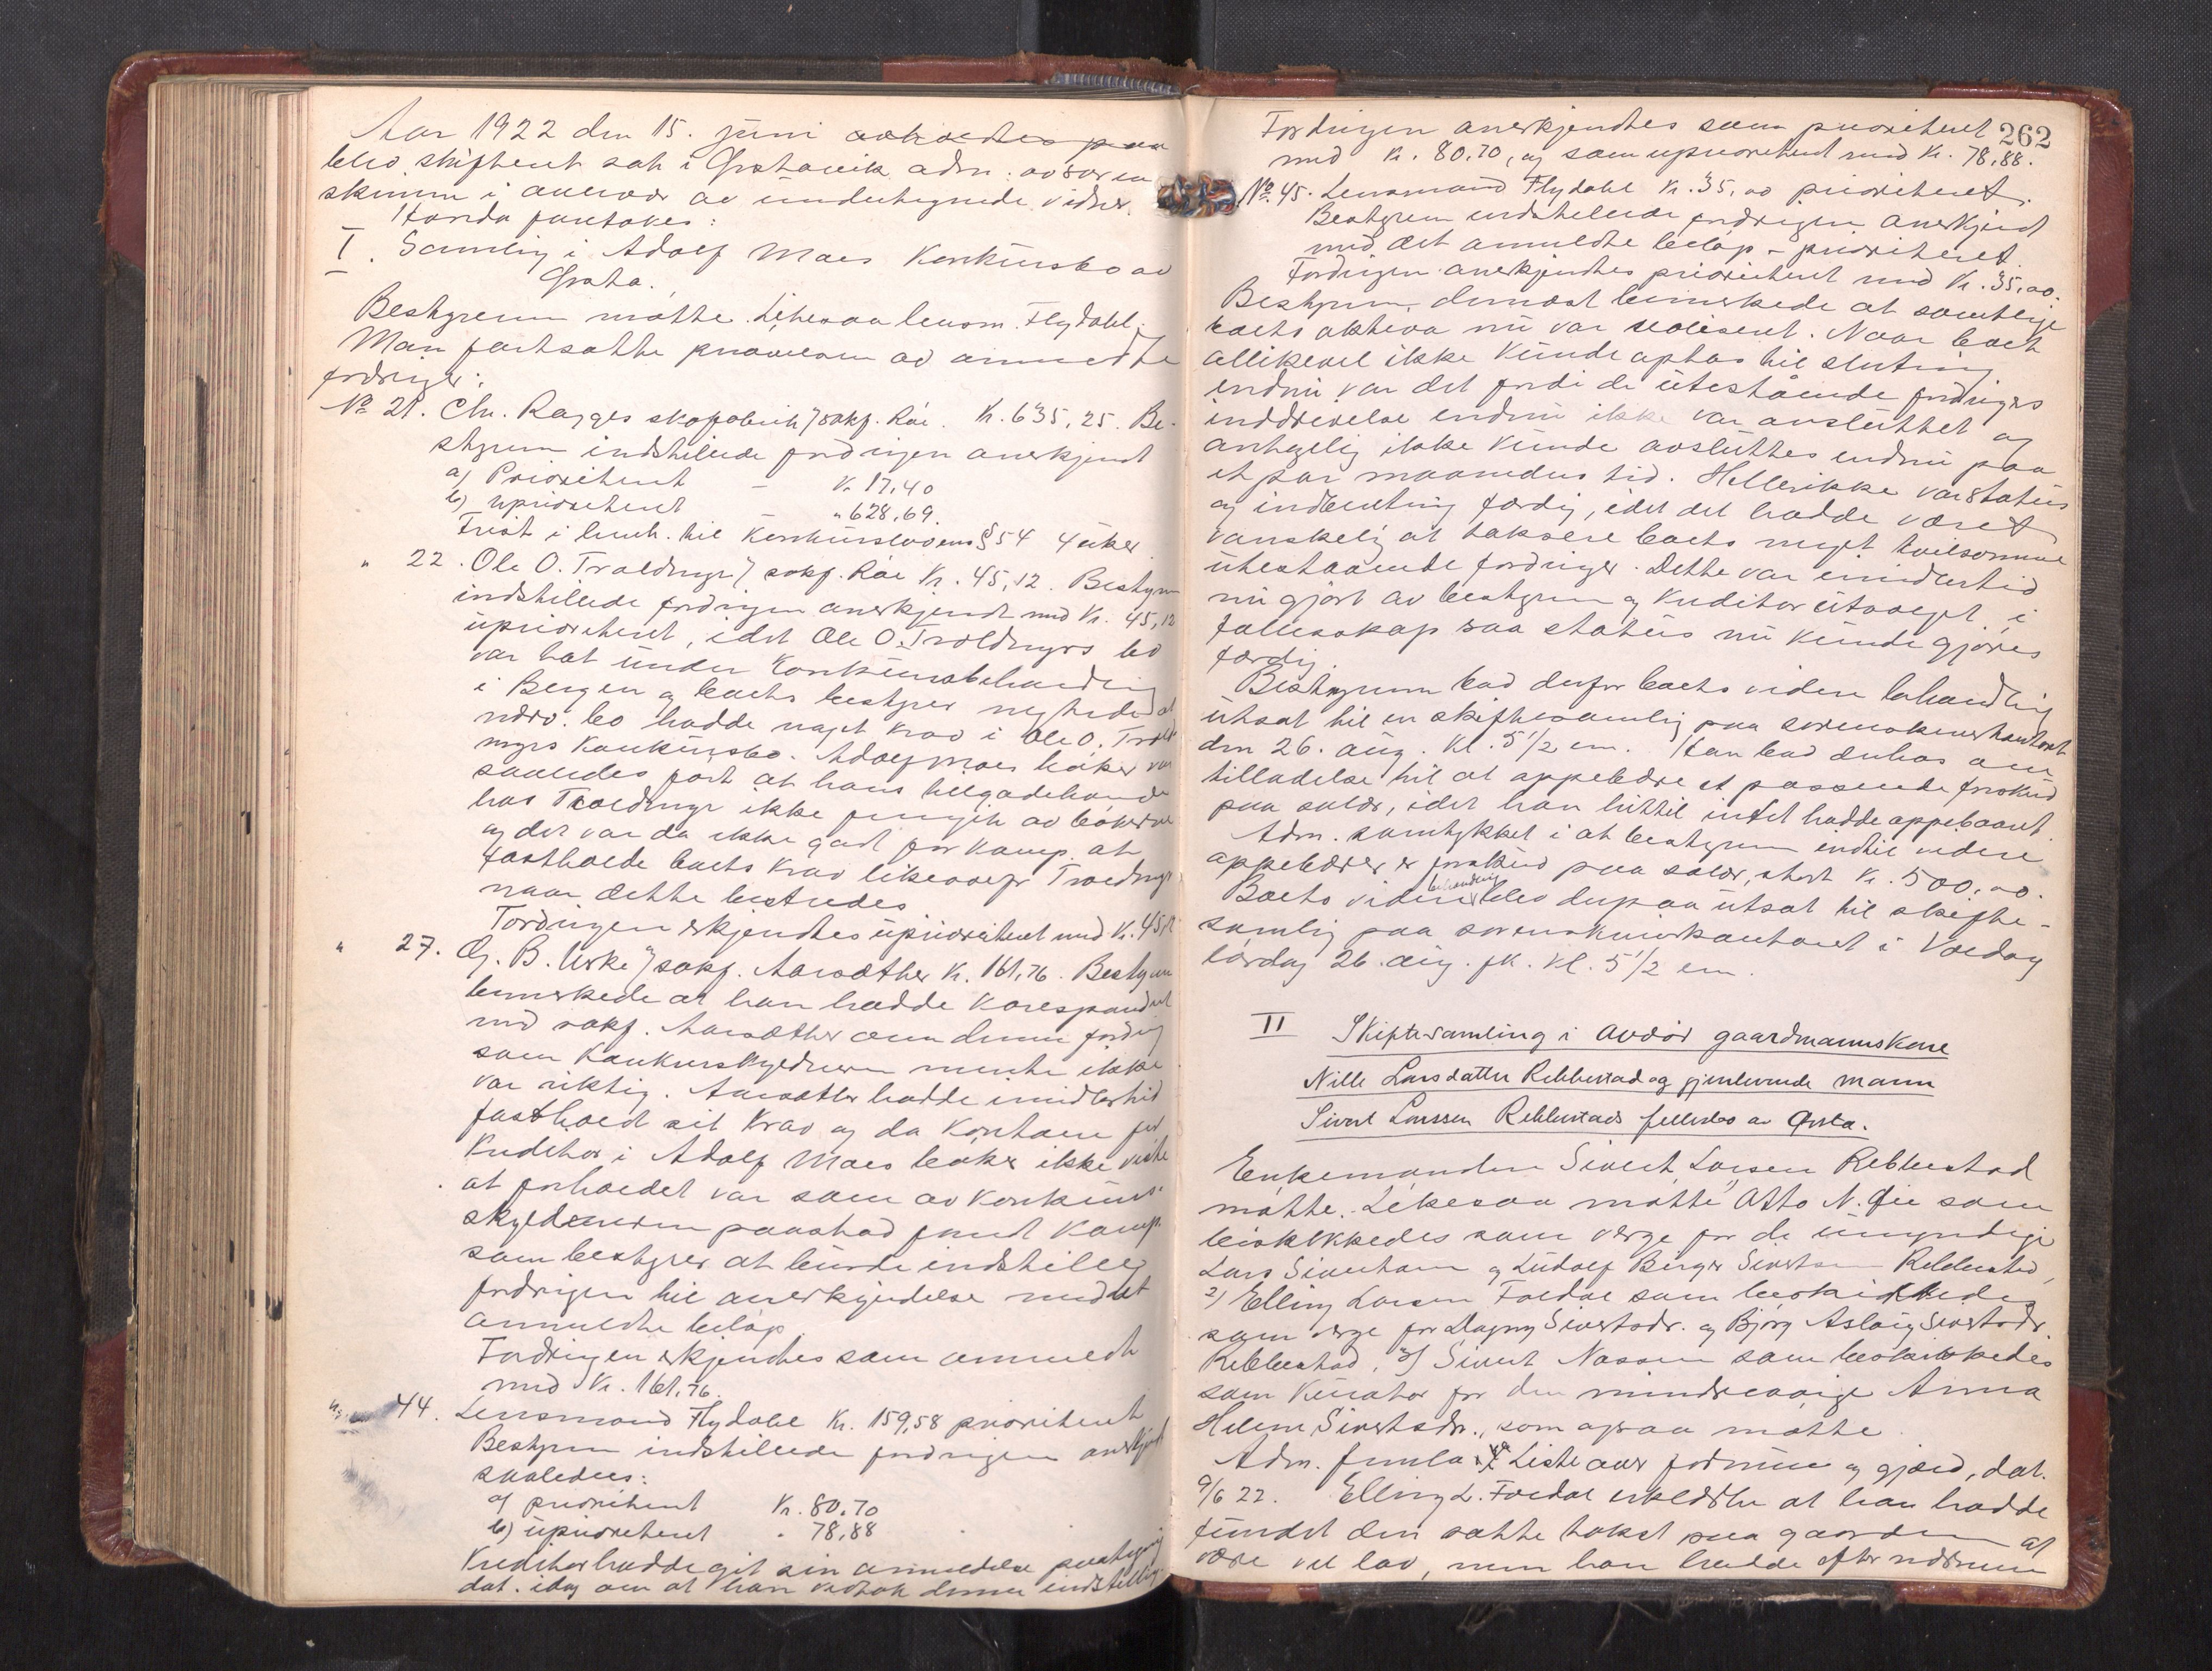 Aar 1922 den 15. juni avholdtes paa
blev skifteret sat i Ørstavik, adm: av sorenskriveren
i nærvær av undertegnede vidner.
Hvorda foretokes:
I. Samling i Adolf Moes Konkursbo av
Ørsta.
Bestyreren møtte. Likesaa lensm. Flydahl.
Man fortsatte prøvelsen av anmeldte
fordringer:
No 21. Chr. Ragges skofabrik v/ sakf. Råe. Kr. 635,25. Be-
styreren indstillede fordringen anerkjent
a) Prioritert – Kr. 17,40
b) uprioritert " 628,69.
Frist i henh. til Konkurslovens § 54 4 uker.
" 22. Ole O. Troldmyr v/ sakf. Råe Kr. 45,12. Bestyreren
indstillede fordringen anerkjendt med Kr. 45,12
uprioritert, idet Ole O. Troldmyrs bo
var tat under konkursbehandling
i Bergen og boets bestyrer negtede at
nærv. bo hadde noget krav i Ole O. Trold-
myrs konkursbo. Adolf Moes bøker var
saaledes ført at hans tilgodehavende
hos Troldmyr ikke fremgik av bøkerne
og det var da ikke godt for Komp. at
fastholde boets krav likeoverfor Troldmyr
naar dette bestredes
Fordringen erkjendtes uprioritert med Kr. 45,12
" 27. G. B. Urke v/ sakf. Aarsæther Kr. 161,76. Bestyreren
bemerkede at han hadde korespondert
med sakf. Aarsæther om denne fordring
som konkursskyldneren mente ikke
var riktig. Aarsæther hadde imidlertid
fastholdt sit krav og da kontoen for
Kreditor i Adolf Moes bøker ikke viste
at forholdet var som av konkurs-
skyldneren paastod fandt Komp.
som bestyrer at burde indstille
fordringen til anerkjendelse med det
anmeldte beløp
Fordringen erkjendtes som anmeldt
med Kr. 161,76.
44. Lensmand Flydahl Kr. 159,58 prioritert
Bestyreren indstillede fordringen anerkjent
saaledes:
a) prioritert Kr. 80,70
b) uprioritert " 78,88
Kreditor hadde git sin anmeldelse paategning
dat. idag om at han vedtok denne indstilling.
262
Fordringen anerkjendtes som prioritert
med Kr. 80,70, og som uprioritert med Kr. 78,88.
No 45. Lensmand Flydahl Kr. 35,00 prioritert.
Bestyreren indstillede fordringen anerkjent
med det anmeldte beløp – prioritert.
Fordringen anerkjendtes prioritert med Kr. 35,00.
Bestyreren dernæst bemerkede at samtlige
boets aktiva nu var realisert. Naar boet
allikevel ikke kunde optas til slutning
endnu var det fordi de utestående fordringers
inddrivelse endnu ikke var avsluttet og
antagelig ikke kunde avsluttes endnu paa
et par maaneders tid. Heller ikke var status
og indberetning færdig, idet det hadde været
vanskelig at taksere boets meget tvilsomme
utestaaende fordringer. Dette var imidlertid
nu gjort av bestyreren og kreditorutvalget i
fællesskap saa status nu kunde gjøres
færdig.
Bestyreren bad derfor boets videre behandling
utsat til en skiftesamling paa sorenskriverkontoret
den 26. aug. kl. 5 1/2 em. Han bad derhos om
tilladelse til at oppebære et passende forskud
paa salær, idet han hittil intet hadde oppebaaret.
Adm. samtykket i at bestyreren indtil videre
oppebærer et forskud paa salær, stort Kr. 500,00.
Boets videre behandling blev derpaa utsat til skifte-
samling paa sorenskriverkontoret i Volda
lørdag 26. aug. fk. kl. 5 1/2 em.
II Skiftesamling i avdød gaardmannskone
Nille Larsdatter Rebbestad og gjenlevende mann
Sivert Larssen Rebbestads fellesbo av Ørsta.
Enkemanden Sivert Larsen Rebbestad
møtte. Likesaa møtte Otto N. Øie som
beskikkedes som verge for de umyndige
Lars Sivertsen og Ludolf Birger Sivertsen Rebbestad,
2) Elling Larsen Foldal som beskikkedes
som verge for Dagny Sivertsdr. og Bjørg Aslaug Sivertsdr.
Rebbestad, 3) Sivert Nassen som beskikkedes
som kurator for den mindreaarige Anna
Helene Sivertsdr., som ogsaa møtte.
Adm. fremla: Liste over formue og gjæld, dat.
9/6 22. Elling L. Foldal erklærte at han hadde
fundet den satte takst paa gaarden at
være vel lav, men han hadde efter nærmere